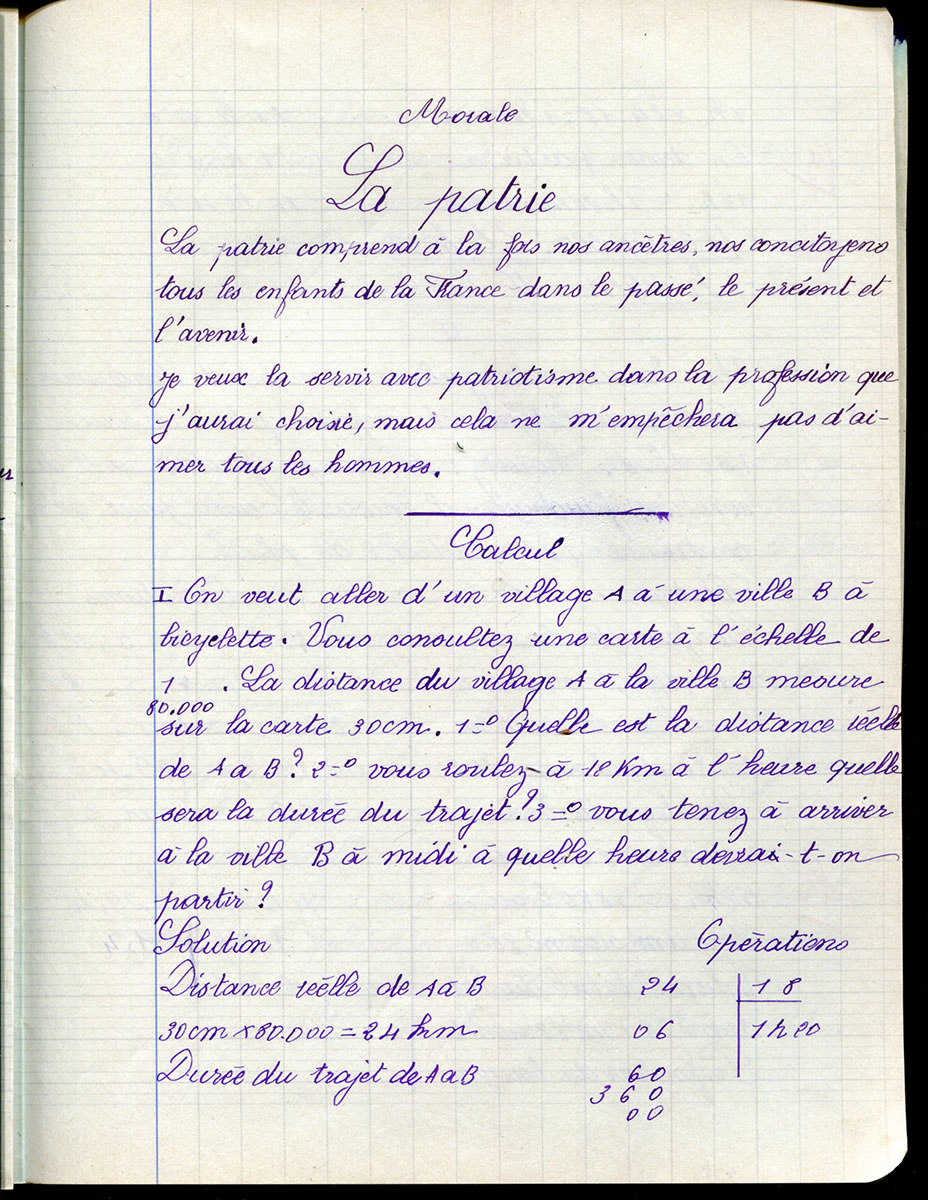 Morale
La patrie
La patrie comprend à la fois nos ancêtres, nos concitoyens
tous les enfants de la France dans le passé, le présent et
l'avenir.
Je veux la servir avec patriotisme dans la profession que
j'aurai choisie, mais cela ne m'empêchera pas d'ai-
mer tous les hommes.
Calcul
I On veut aller d'un village A à une ville B à
bicyclette. Vous consultez une carte à l'échelle de
1 . La distance du village A à la ville B mesure
80.000
sur la carte 30cm. 1=º Quelle est la distance réelle
de A a B? 2=º vous roulez à 18 Km à l'heure quelle
sera la durée du trajet? 3=º vous tenez à arriver
à la ville B à midi à quelle heure devrai-t-on
partir?
Solution Opérations
Distance réelle de A à B 24 18
30cm x 80.000 = 24 km 06 1h20
Durée du trajet de A a B 60
360
00